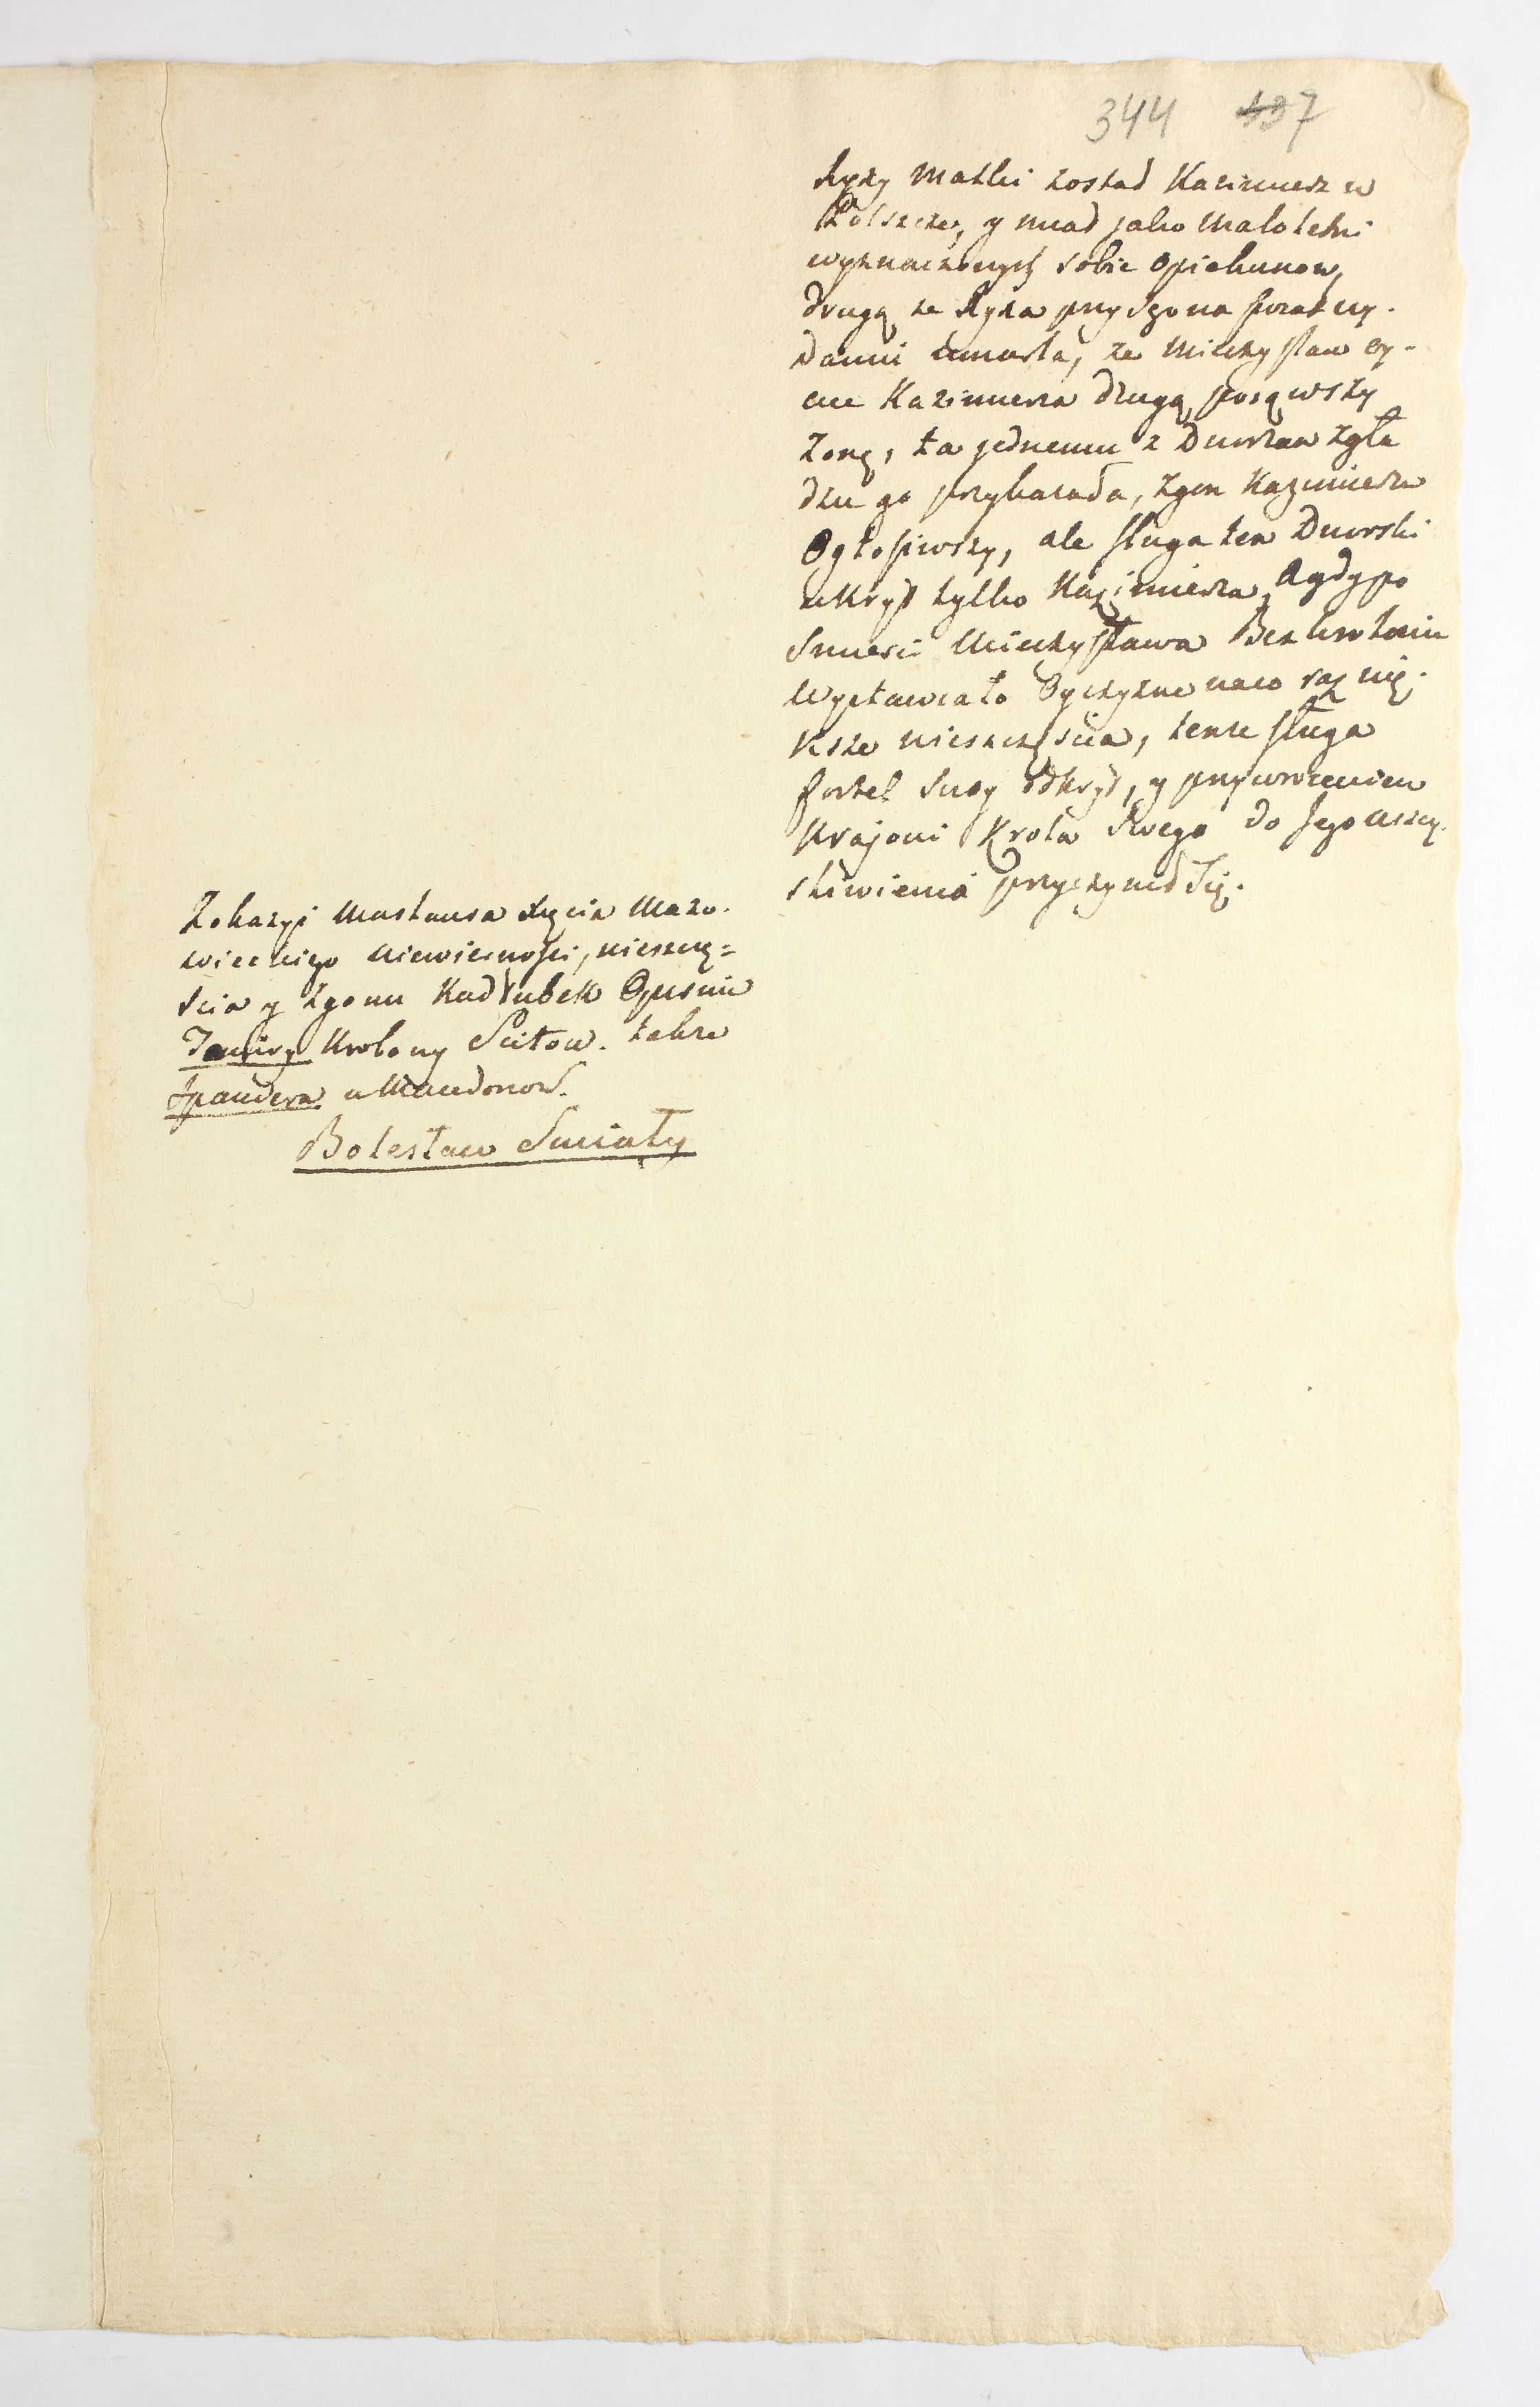 344 137
Ryxy Matki został Kazimierz w
Polszcze, y miał jako Małoletni
wyznaczonych sobie Opiekunow,
drugą, ze Ryxa przy Jego na swiat wy-
daniu umarła, ze Mieczysław Oy-
ciec Kazimierza drugą pojąwszy
Zonę, ta jednemu z Dworzan zgła
dzić go przykazała, zgon Kazimierza
Ogłosiwszy, ale sługa ten Dworski
ukrył tylko Kazimierza, A gdy po
Smierci Mieczysława Bezkrolewie
Wystawiało Oyczyznę na co raz wię-
ksze nieszczęscia, tenze sługa
fortel swoy odkrył, y przywroceniem
Krajowi Krola Swego do Jego uszczę-
sliwienia przyczynił Się.
Z okazyi Masława Xięcia Mazo-
wieckiego niewiernosci, nieszczę-
scia y zgonu Kadłubek Opisuie
Krolowy Scitow. także
u Macedonow.
Bolesław Smiały